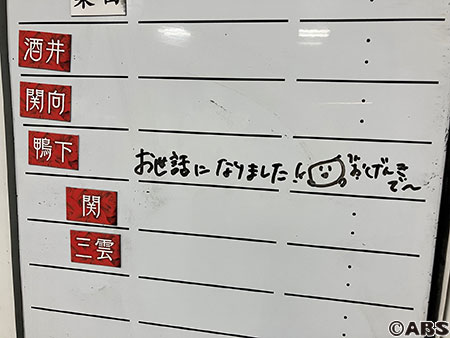 酒井
関向
鴨下
お世話になりました!!
おげんきで〜
関
三雲
©ABS